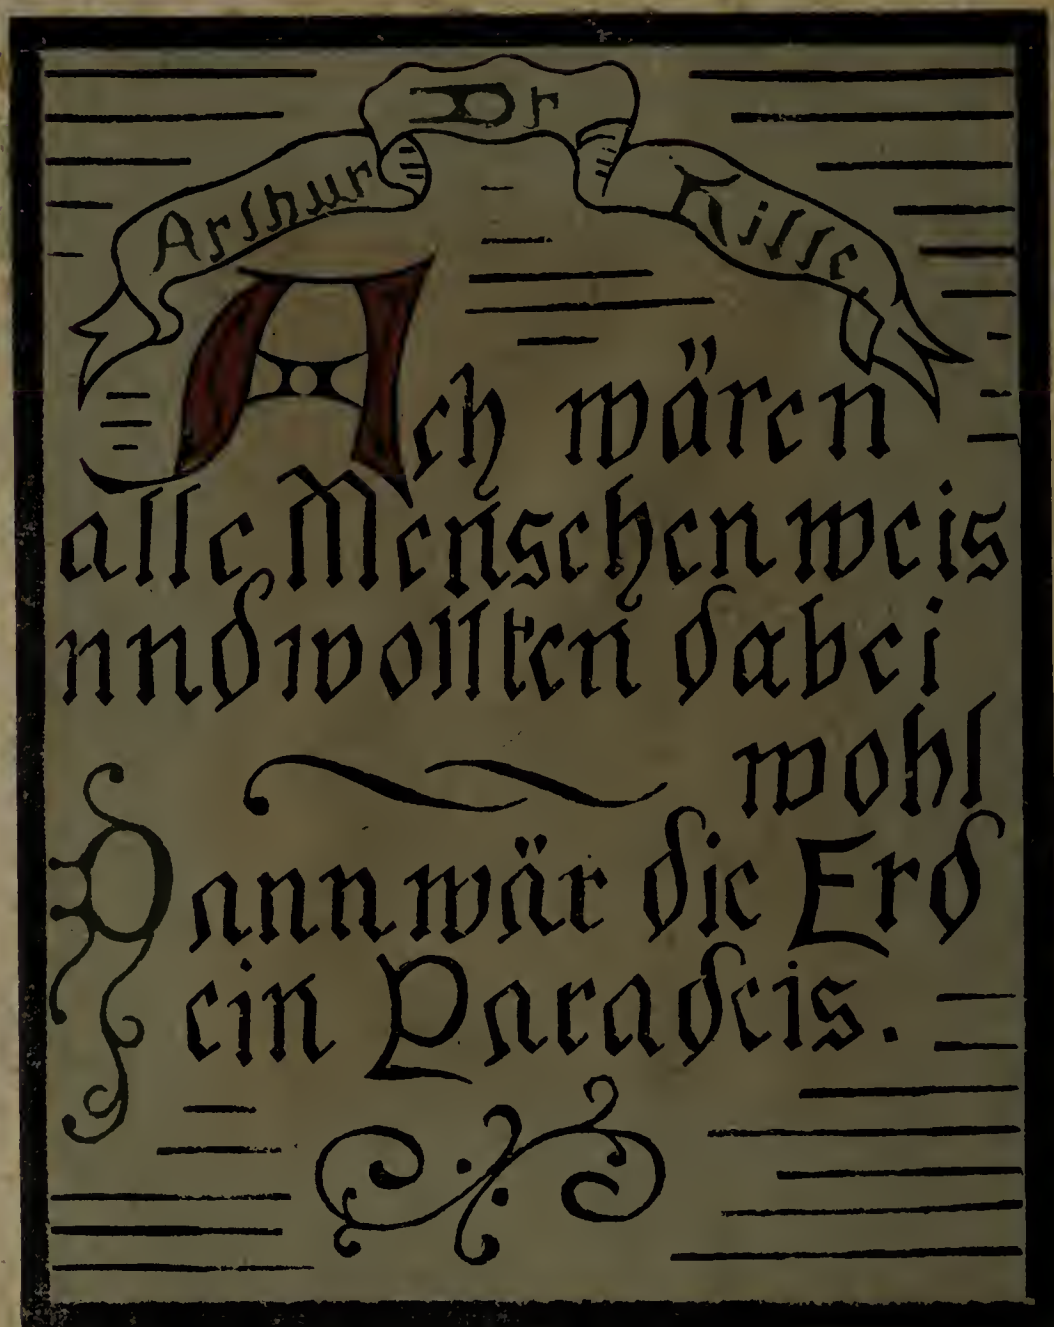 Arthur Dr
Ach wären
alle Menschen weis
und wollten dabei
wohl
Dann wär die Erd
ein Paradeis.